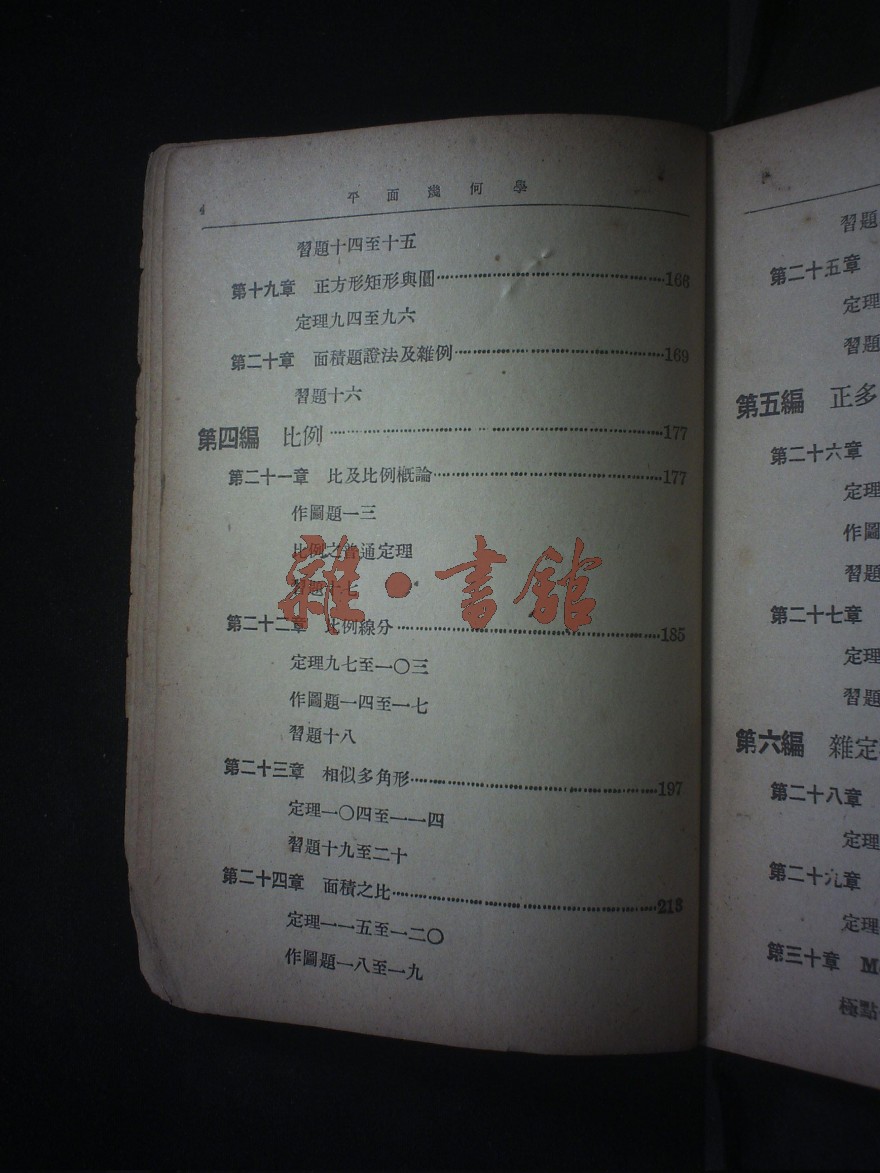 4 平面幾何學
習題十四至十五
第十九章 正方形矩形與圓⋯⋯168
定理九四至九六
第二十章 面積題證法及雜例⋯⋯169
習題十六
第四編 比例⋯⋯177
第二十一章 比及比例槪論⋯⋯177
作圖題一三
比例之普通定理
習題十七
第二十二章 比例線分⋯⋯185
定理九七至一〇三
作圖題一四至一七
習題十八
第二十三章 相似多角形⋯⋯197
定理一〇四至一一四
習題十九至二十
第二十四章 面積之比⋯⋯213
定理一一五至一二〇
作圖題一八至一九
雜·書館
習題
第二十五章
定理
習題
第五編 正多
第二十六章
定理
作圖
習題
第二十七章
定理
習題
第六編 雜定
第二十八章
定理
第二十九章
定理
第三十章 M
極點